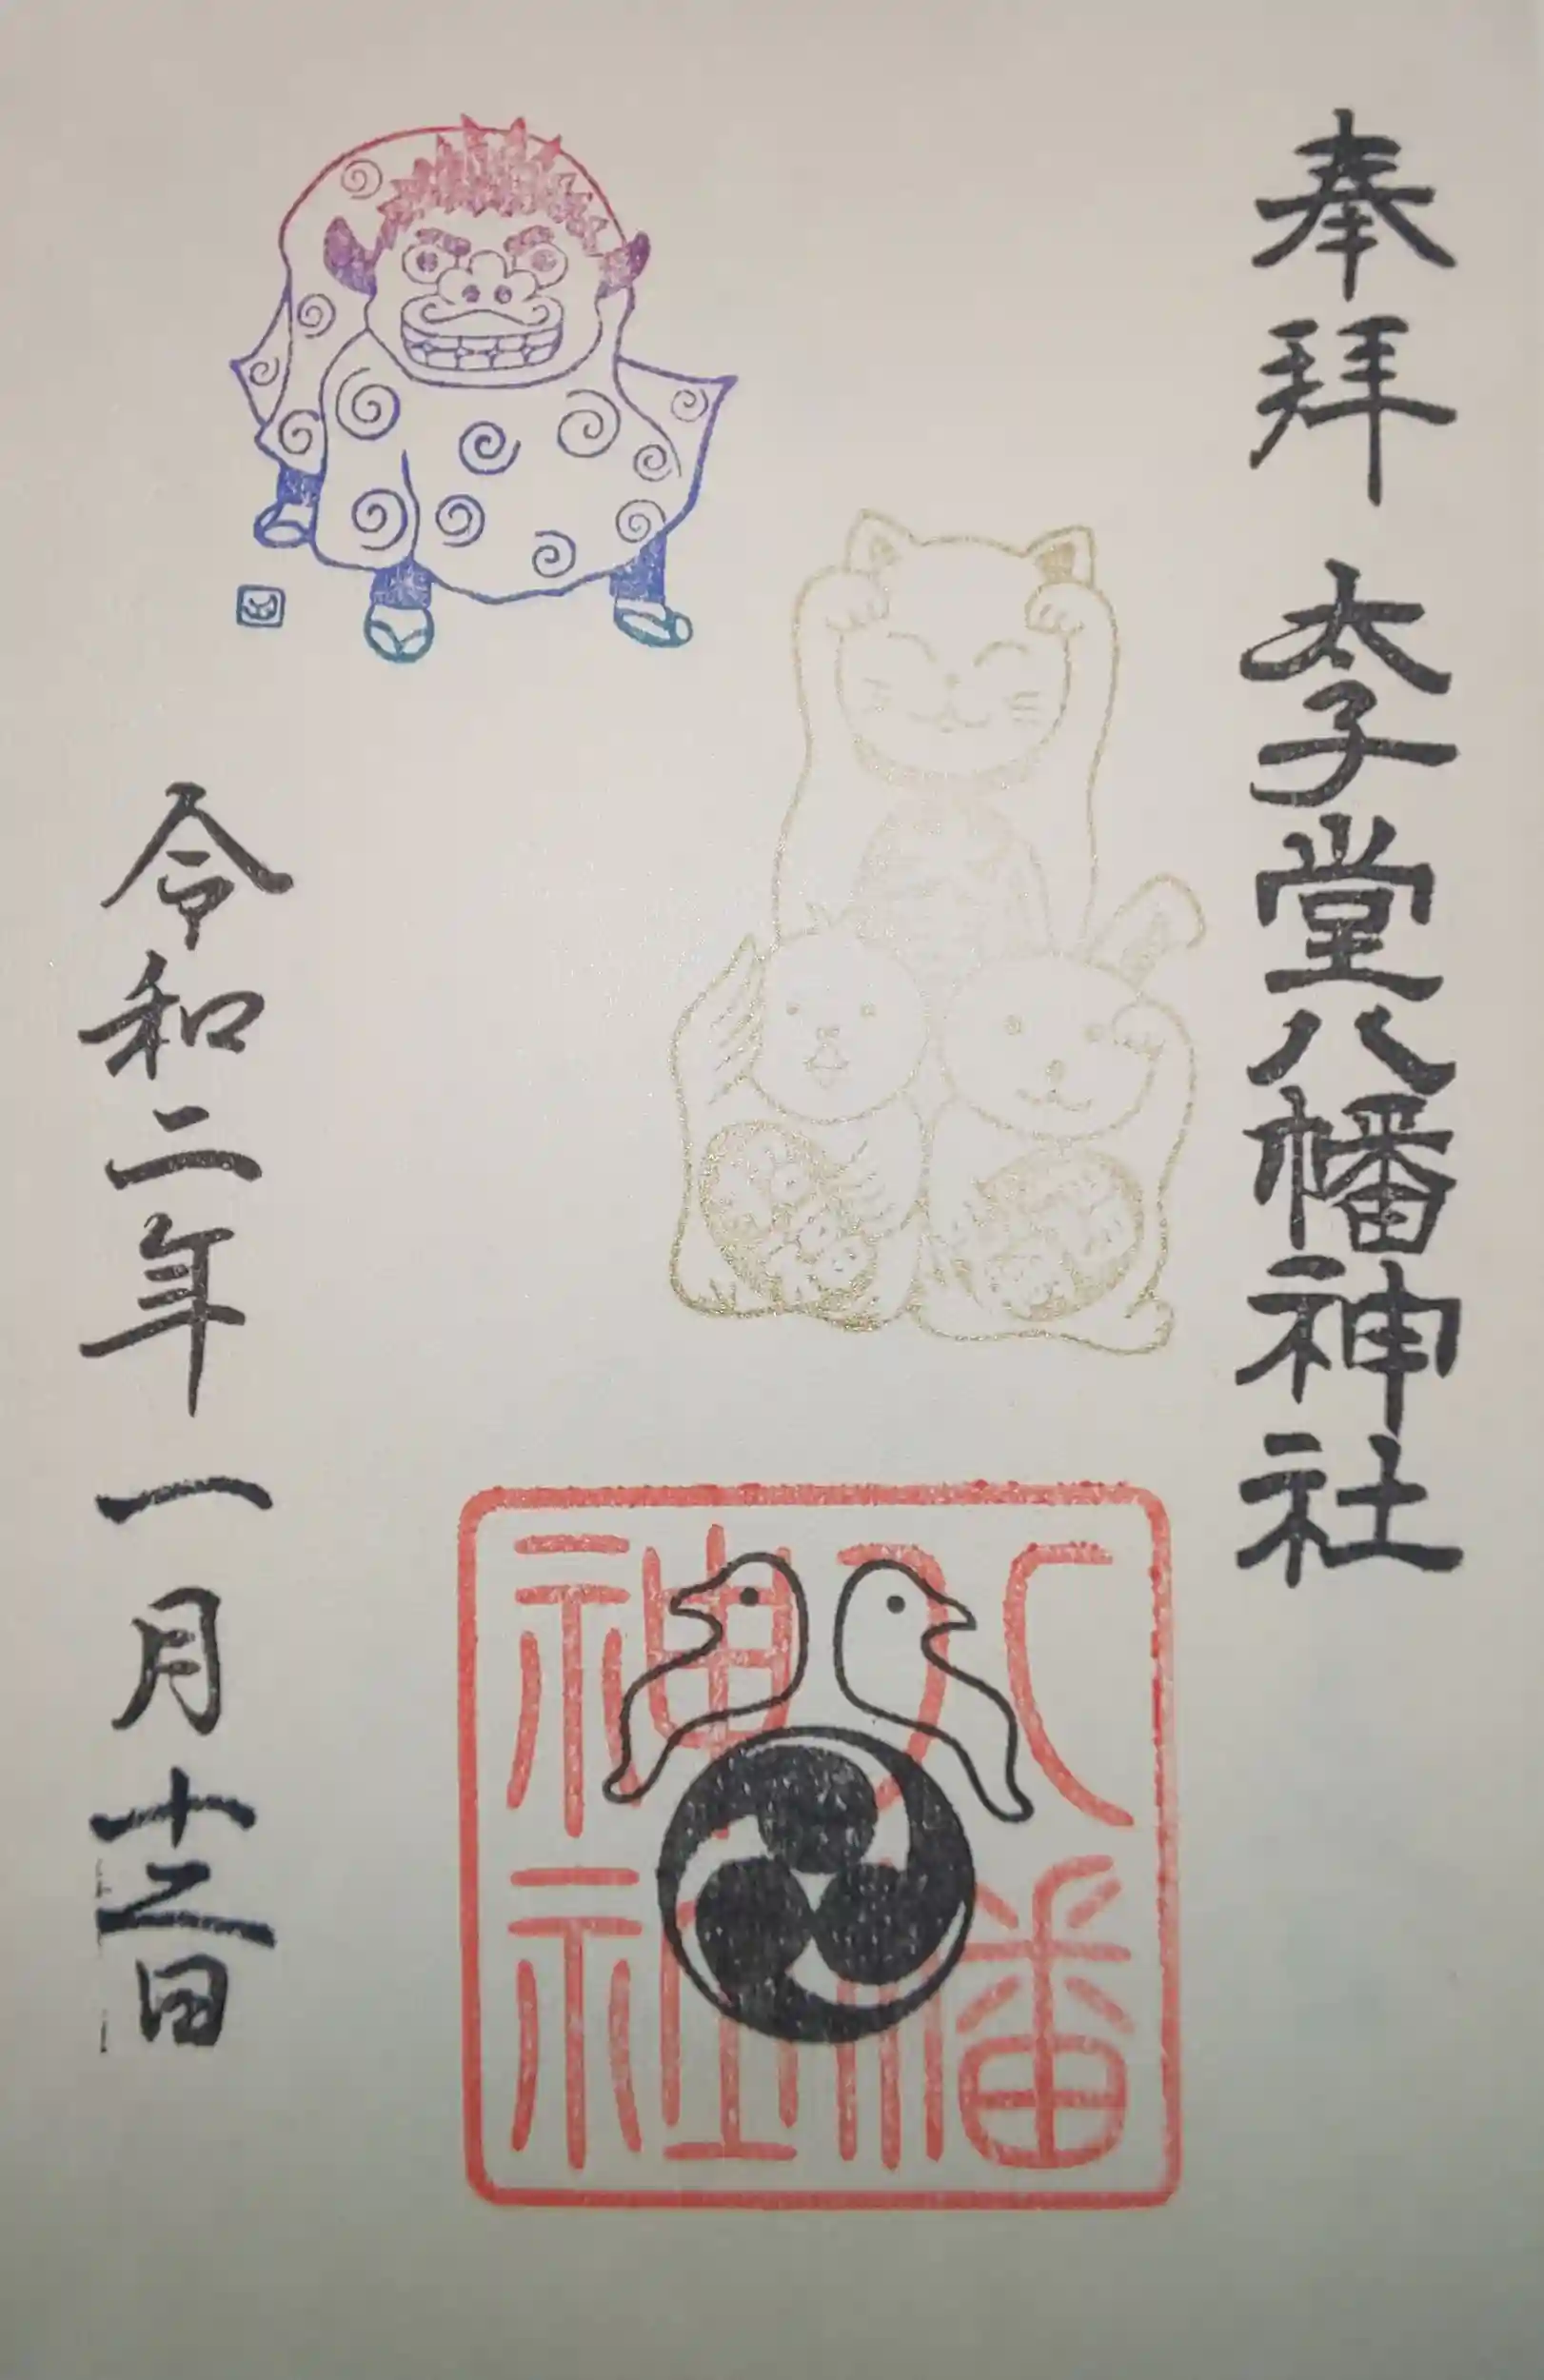 奉拝 太子堂八幡神社
八幡神社
令和二年一月十二日